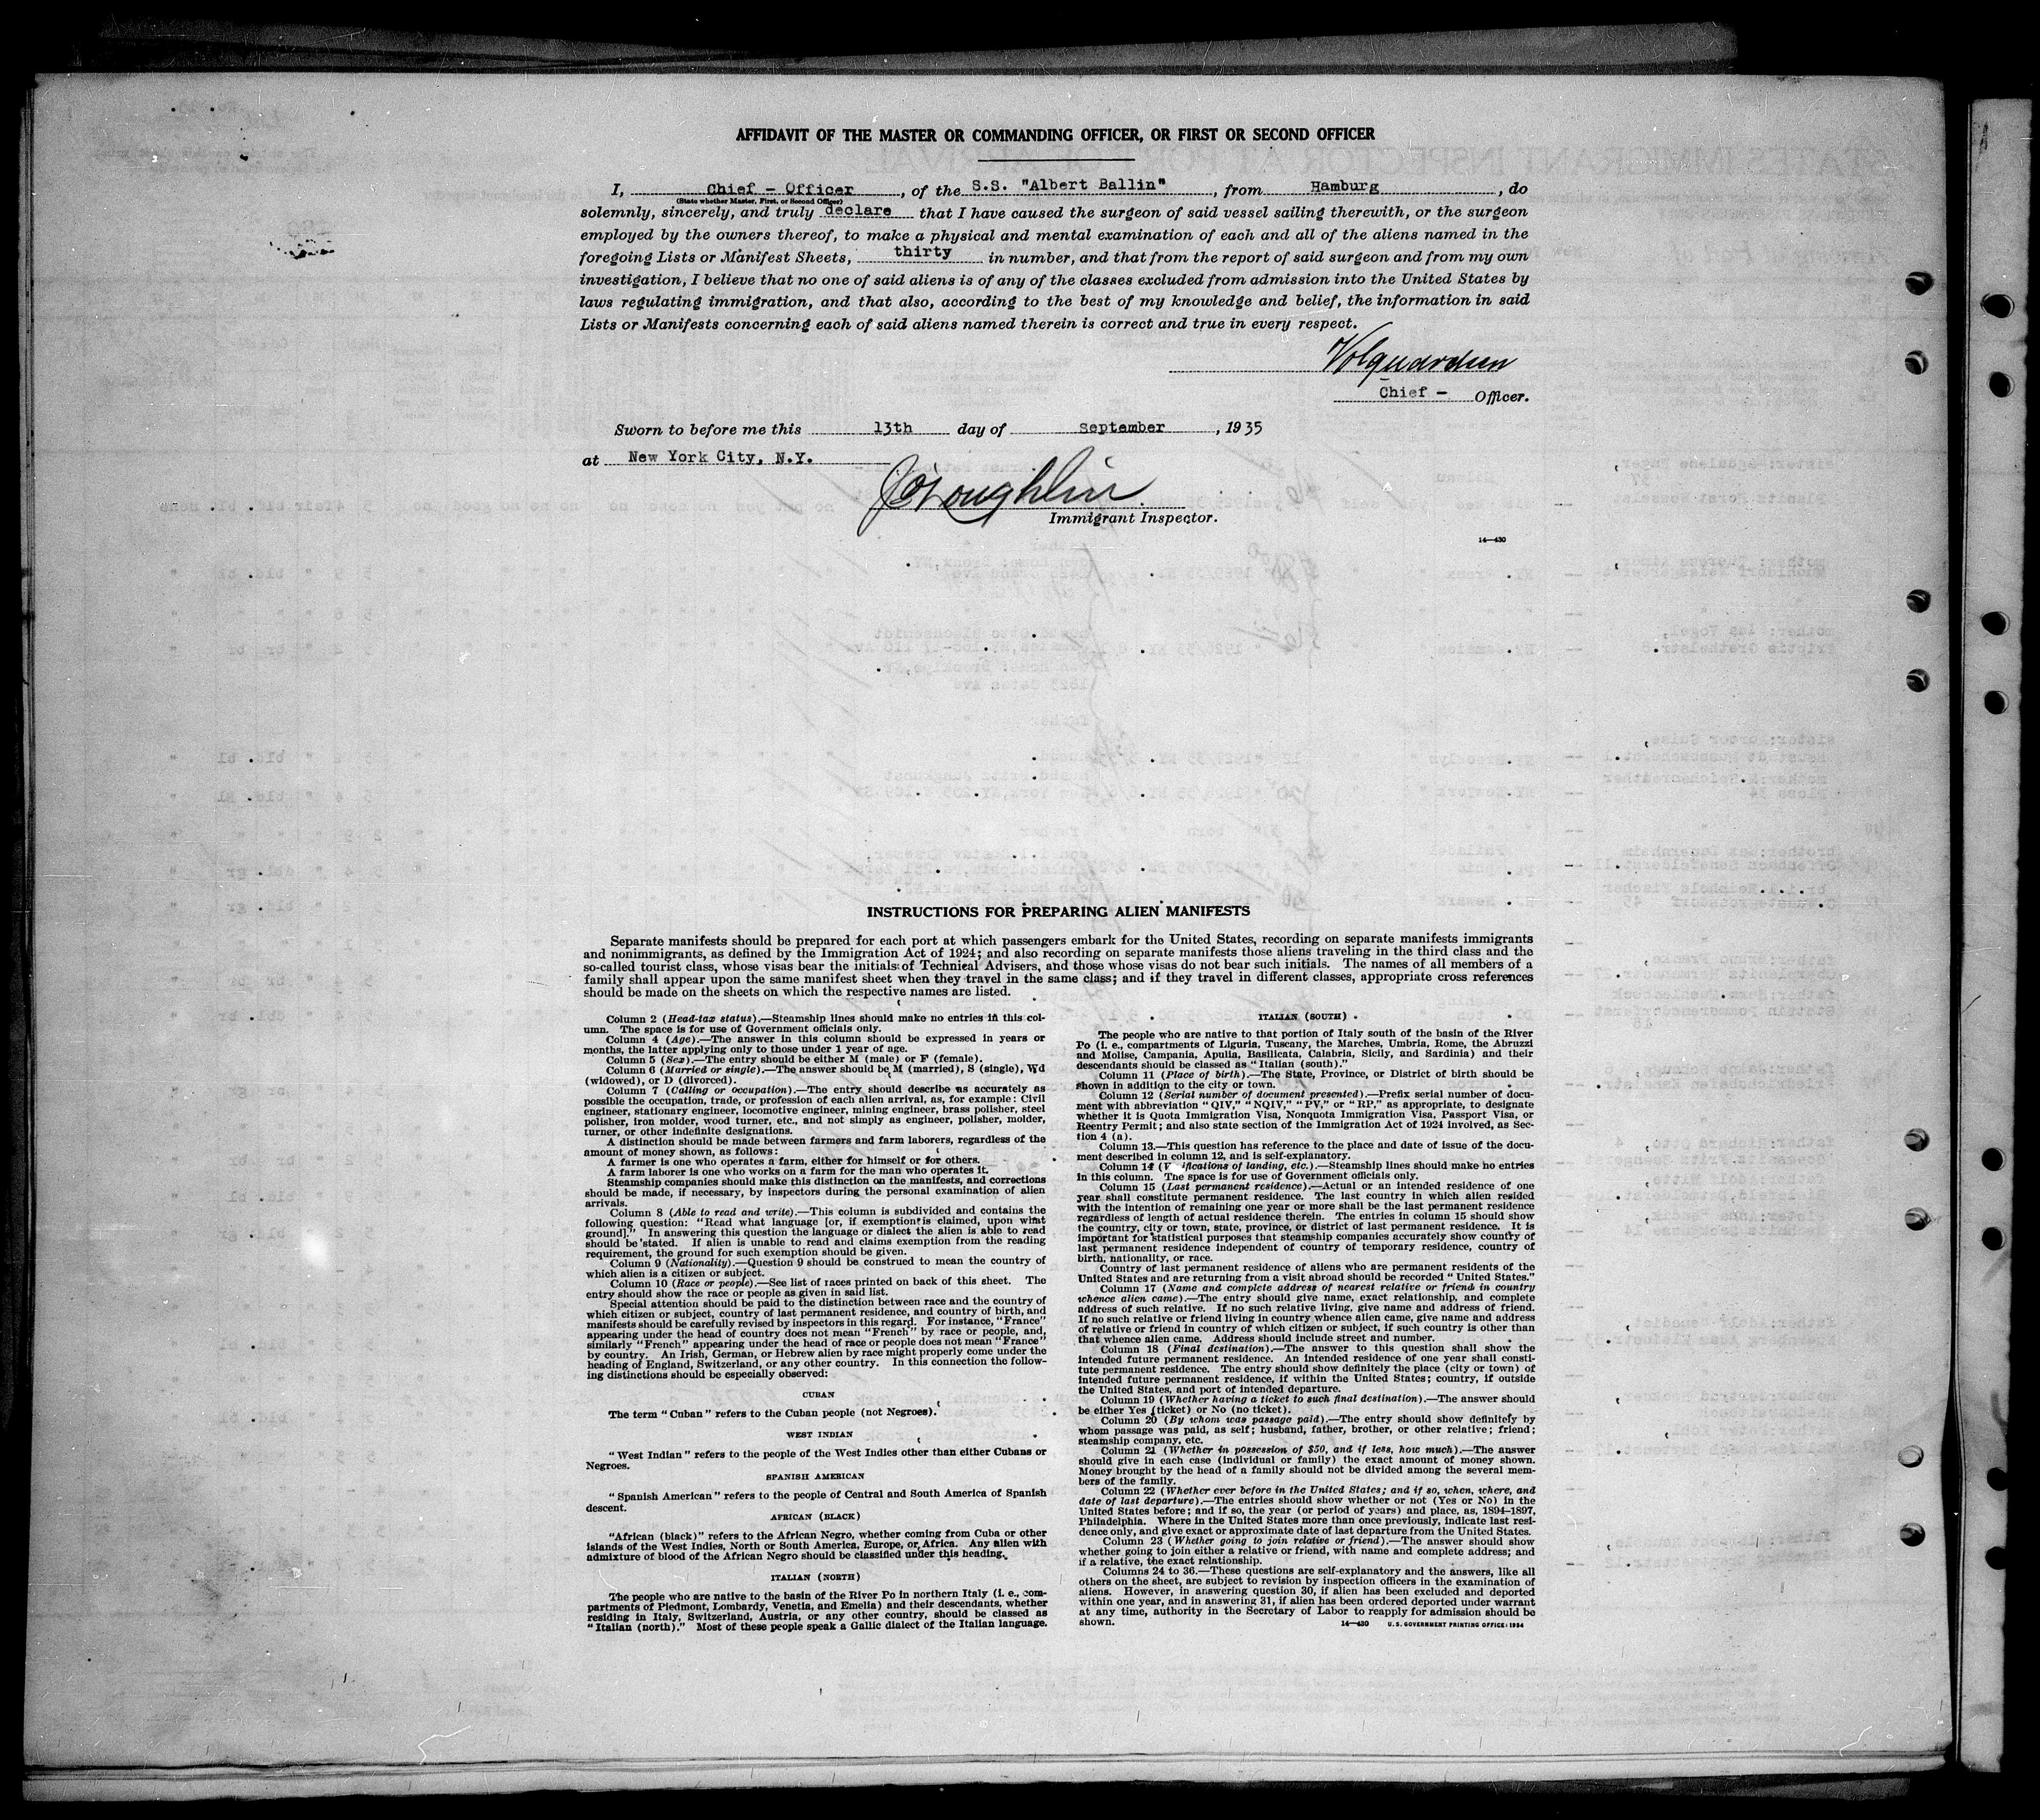 AFFIDAVIT OF THE MASTER OR COMMANDING OFFICER, OR FIRST OR SECOND OFFICER
I, Chief - Officer, of the S.S. "Albert Ballin", from Hamburg, do
(State whether Master, First, or Second Officer)
solemnly, sincerely, and truly declare that I have caused the surgeon of said vessel sailing therewith, or the surgeon
employed by the owners thereof, to make a physical and mental examination of each and all of the aliens named in the
foregoing Lists or Manifest Sheets, thirty in number, and that from the report of said surgeon and from my own
investigation, I believe that no one of said aliens is of any of the classes excluded from admission into the United States by
laws regulating immigration, and that also, according to the best of my knowledge and belief, the information in said
Lists or Manifests concerning each of said aliens named therein is correct and true in every respect.
Volquardsen
Chief - Officer.
Sworn to before me this 13th day of September, 1935
at New York City, N.Y.
J O'Loughlin
Immigrant Inspector.
14—430
INSTRUCTIONS FOR PREPARING ALIEN MANIFESTS
Separate manifests should be prepared for each port at which passengers embark for the United States, recording on separate manifests immigrants
and nonimmigrants, as defined by the Immigration Act of 1924; and also recording on separate manifests those aliens traveling in the third class and the
so-called tourist class, whose visas bear the initials of Technical Advisers, and those whose visas do not bear such initials. The names of all members of a
family shall appear upon the same manifest sheet when they travel in the same class; and if they travel in different classes, appropriate cross references
should be made on the sheets on which the respective names are listed.
Column 2 (Head-tax status).—Steamship lines should make no entries in this col-
umn. The space is for use of Government officials only.
Column 4 (Age).—The answer in this column should be expressed in years or
months, the latter applying only to those under 1 year of age.
Column 5 (Sex).—The entry should be either M (male) or F (female).
Column 6 (Married or single).—The answer should be M (married), S (single), Wd
(widowed), or D (divorced).
Column 7 (Calling or occupation).—The entry should describe as accurately as
possible the occupation, trade, or profession of each alien arrival, as, for example: Civil
engineer, stationary engineer, locomotive engineer, mining engineer, brass polisher, steel
polisher, iron molder, wood turner, etc., and not simply as engineer, polisher, molder,
turner, or other indefinite designations.
A distinction should be made between farmers and farm laborers, regardless of the
amount of money shown, as follows:
A farmer is one who operates a farm, either for himself or for others.
A farm laborer is one who works on a farm for the man who operates it.
Steamship companies should make this distinction on the manifests, and corrections
should be made, if necessary, by inspectors during the personal examination of alien
arrivals.
Column 8 (Able to read and write).—This column is subdivided and contains the
following question: "Read what language [or, if exemption is claimed, upon what
ground]." In answering this question the language or dialect the alien is able to read
should be stated. If alien is unable to read and claims exemption from the reading
requirement, the ground for such exemption should be given.
Column 9 (Nationality).—Question 9 should be construed to mean the country of
which alien is a citizen or subject.
Column 10 (Race or people).—See list of races printed on back of this sheet. The
entry should show the race or people as given in said list.
Special attention should be paid to the distinction between race and the country of
which citizen or subject, country of last permanent residence, and country of birth, and
manifests should be carefully revised by inspectors in this regard. For instance, "France"
appearing under the head of country does not mean "French" by race or people, and,
similarly "French" appearing under the head of race or people does not mean "France"
by country. An Irish, German, or Hebrew alien by race might properly come under the
heading of England, Switzerland, or any other country. In this connection the follow-
ing distinctions should be especially observed:
CUBAN
The term "Cuban" refers to the Cuban people (not Negroes).
WEST INDIAN
"West Indian" refers to the people of the West Indies other than either Cubans or
Negroes.
SPANISH AMERICAN
"Spanish American" refers to the people of Central and South America of Spanish
descent.
AFRICAN (BLACK)
"African (black)" refers to the African Negro, whether coming from Cuba or other
islands of the West Indies, North or South America, Europe, or Africa. Any alien with
admixture of blood of the African Negro should be classified under this heading.
ITALIAN (NORTH)
The people who are native to the basin of the River Po in northern Italy (i. e., com-
partments of Piedmont, Lombardy, Venetia, and Emelia) and their descendants, whether
residing in Italy, Switzerland, Austria, or any other country, should be classed as
"Italian (north)." Most of these people speak a Gallic dialect of the Italian language.
ITALIAN (SOUTH)
The people who are native to that portion of Italy south of the basin of the River
Po (i. e., compartments of Liguria, Tuscany, the Marches, Umbria, Rome, the Abruzzi
and Molise, Campania, Apulia, Basilicata, Calabria, Sicily, and Sardinia) and their
descendants should be classed as "Italian (south)."
Column 11 (Place of birth).—The State, Province, or District of birth should be
shown in addition to the city or town.
Column 12 (Serial number of document presented).—Prefix serial number of docu-
ment with abbreviation "QIV," "NQIV," "PV," or "RP," as appropriate, to designate
whether it is Quota Immigration Visa, Nonquota Immigration Visa, Passport Visa, or
Reentry Permit; and also state section of the Immigration Act of 1924 involved, as Sec-
tion 4 (a).
Column 13.—This question has reference to the place and date of issue of the docu-
ment described in column 12, and is self-explanatory.
Column 14 (Verifications of landing, etc.).—Steamship lines should make no entries
in this column. The space is for use of Government officials only.
Column 15 (Last permanent residence).—Actual or an intended residence of one
year shall constitute permanent residence. The last country in which alien resided
with the intention of remaining one year or more shall be the last permanent residence
regardless of length of actual residence therein. The entries in column 15 should show
the country, city or town, state, province, or district of last permanent residence. It is
important for statistical purposes that steamship companies accurately show country of
last permanent residence independent of country of temporary residence, country of
birth, nationality, or race.
Country of last permanent residence of aliens who are permanent residents of the
United States and are returning from a visit abroad should be recorded "United States."
Column 17 (Name and complete address of nearest relative or friend in country
whence alien came).—The entry should give name, exact relationship, and complete
address of such relative. If no such relative living, give name and address of friend.
If no such relative or friend living in country whence alien came, give name and address
of relative or friend in country of which citizen or subject, if such country is other than
that whence alien came. Address should include street and number.
Column 18 (Final destination).—The answer to this question shall show the
intended future permanent residence. An intended residence of one year shall consti-
tute permanent residence. The entry should show definitely the place (city or town) of
intended future permanent residence, if within the United States; country, if outside
the United States, and port of intended departure.
Column 19 (Whether having a ticket to such final destination).—The answer should
be either Yes (ticket) or No (no ticket).
Column 20 (By whom was passage paid).—The entry should show definitely by
whom passage was paid, as self; husband, father, brother, or other relative; friend;
steamship company, etc.
Column 21 (Whether in possession of $50, and if less, how much).—The answer
should give in each case (individual or family) the exact amount of money shown.
Money brought by the head of a family should not be divided among the several mem-
bers of the family.
Column 22 (Whether ever before in the United States; and if so, when, where, and
date of last departure).—The entries should show whether or not (Yes or No) in the
United States before; and if so, the year (or period of years) and place, as, 1894-1897,
Philadelphia. Where in the United States more than once previously, indicate last resi-
dence only, and give exact or approximate date of last departure from the United States.
Column 23 (Whether going to join relative or friend).—The answer should show
whether going to join either a relative or friend, with name and complete address; and
if a relative, the exact relationship.
Columns 24 to 36.—These questions are self-explanatory and the answers, like all
others on the sheet, are subject to revision by inspection officers in the examination of
aliens. However, in answering question 30, if alien has been excluded and deported
within one year, and in answering 31, if alien has been ordered deported under warrant
at any time, authority in the Secretary of Labor to reapply for admission should be
shown.
14—430 U.S. GOVERNMENT PRINTING OFFICE: 1934